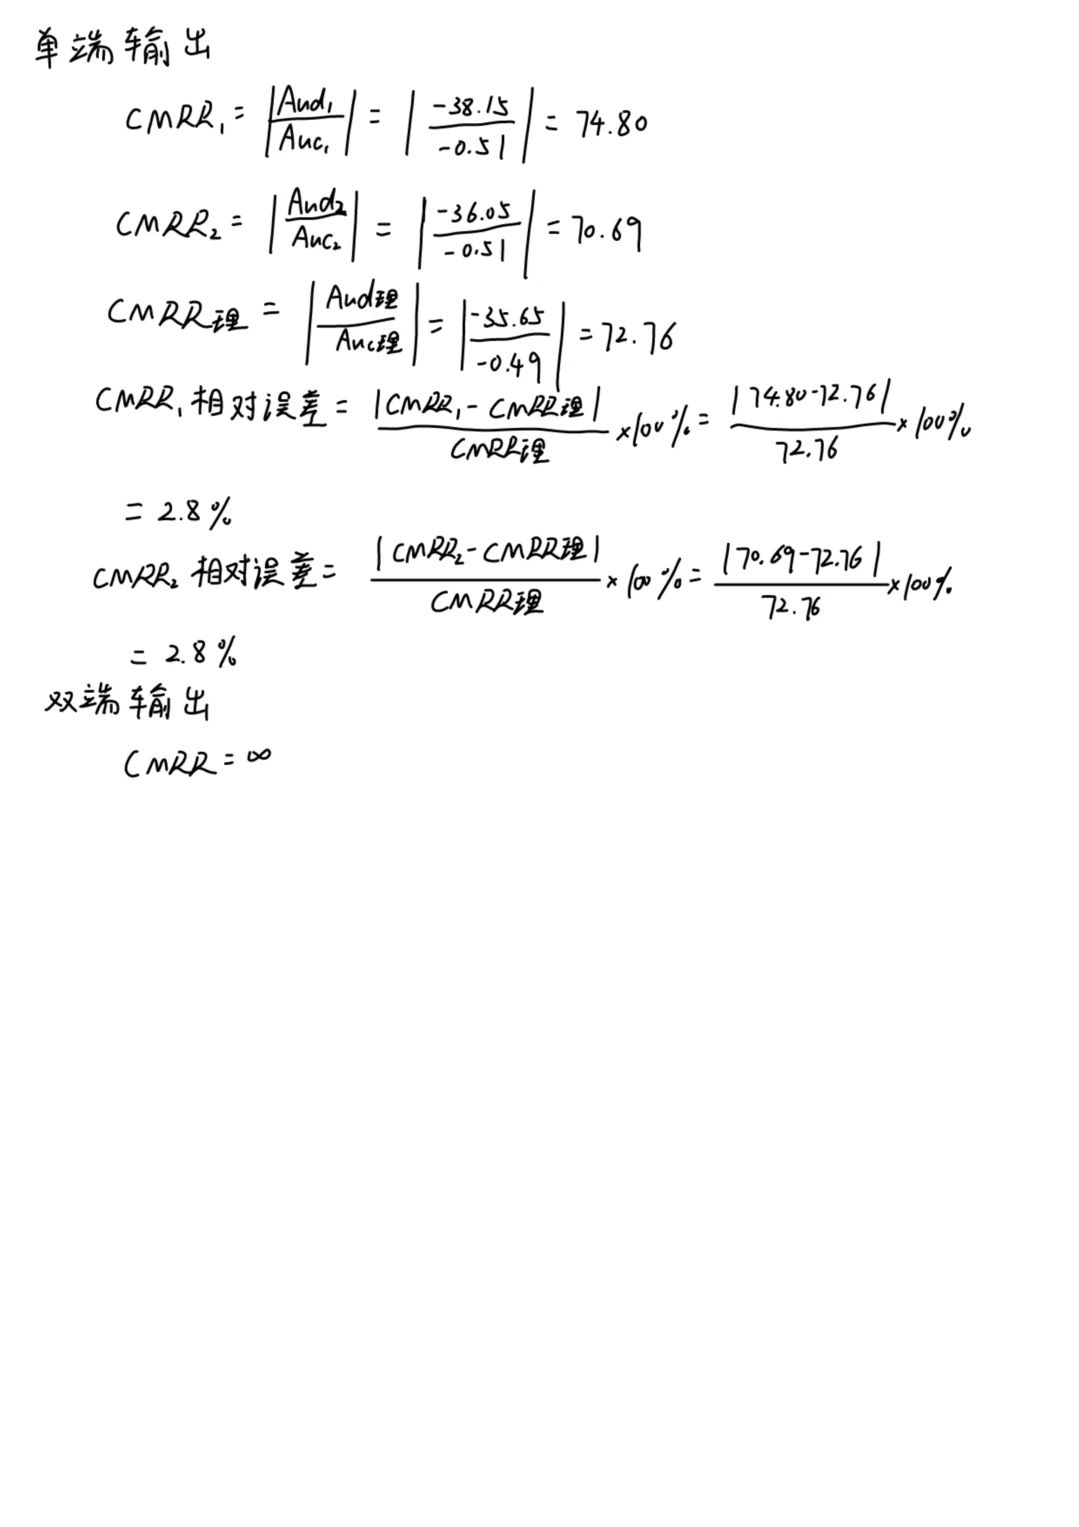 单端输出
CMRR₁ = |Aud₁/Auc₁| = |-38.15/-0.51| = 74.80
CMRR₂ = |Aud₂/Auc₂| = |-36.05/-0.51| = 70.69
CMRR理 = |Aud理/Auc理| = |-35.65/-0.49| = 72.76
CMRR₁相对误差 = |CMRR₁ - CMRR理|/CMRR理 ×100% = |74.80-72.76|/72.76 ×100%
= 2.8%
CMRR₂相对误差 = |CMRR₂ - CMRR理|/CMRR理 ×100% = |70.69-72.76|/72.76 ×100%
= 2.8%
双端输出
CMRR = ∞